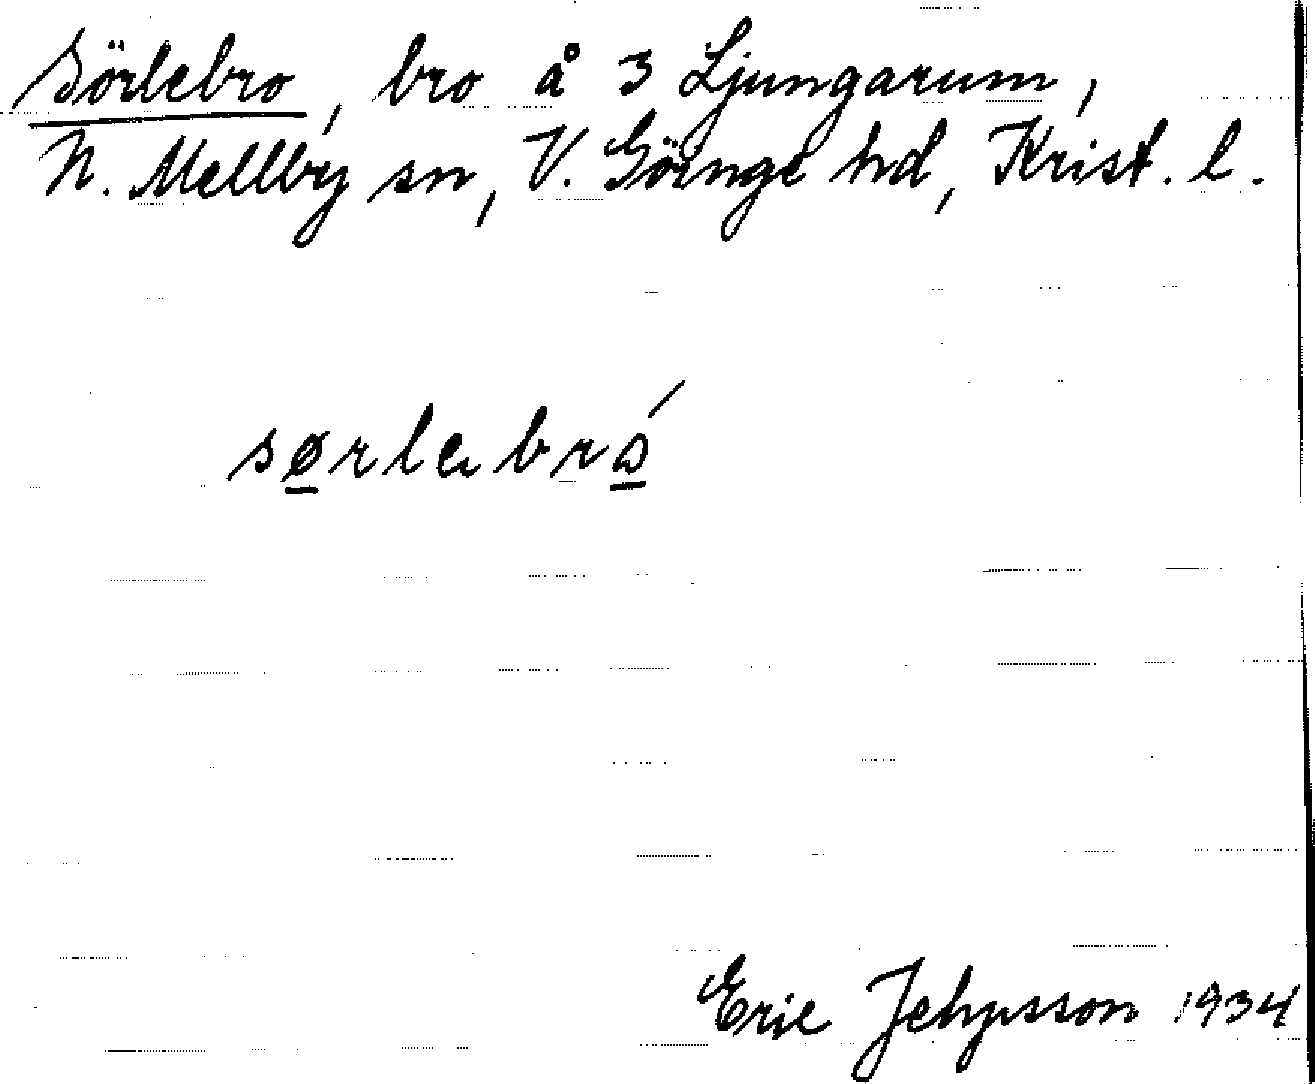 Sörlebro, bro å 3 Ljungarum,
N. Mellby sn, V. Göinge hd, Krist. l.
sørlebró
Eric Jepsson 1934